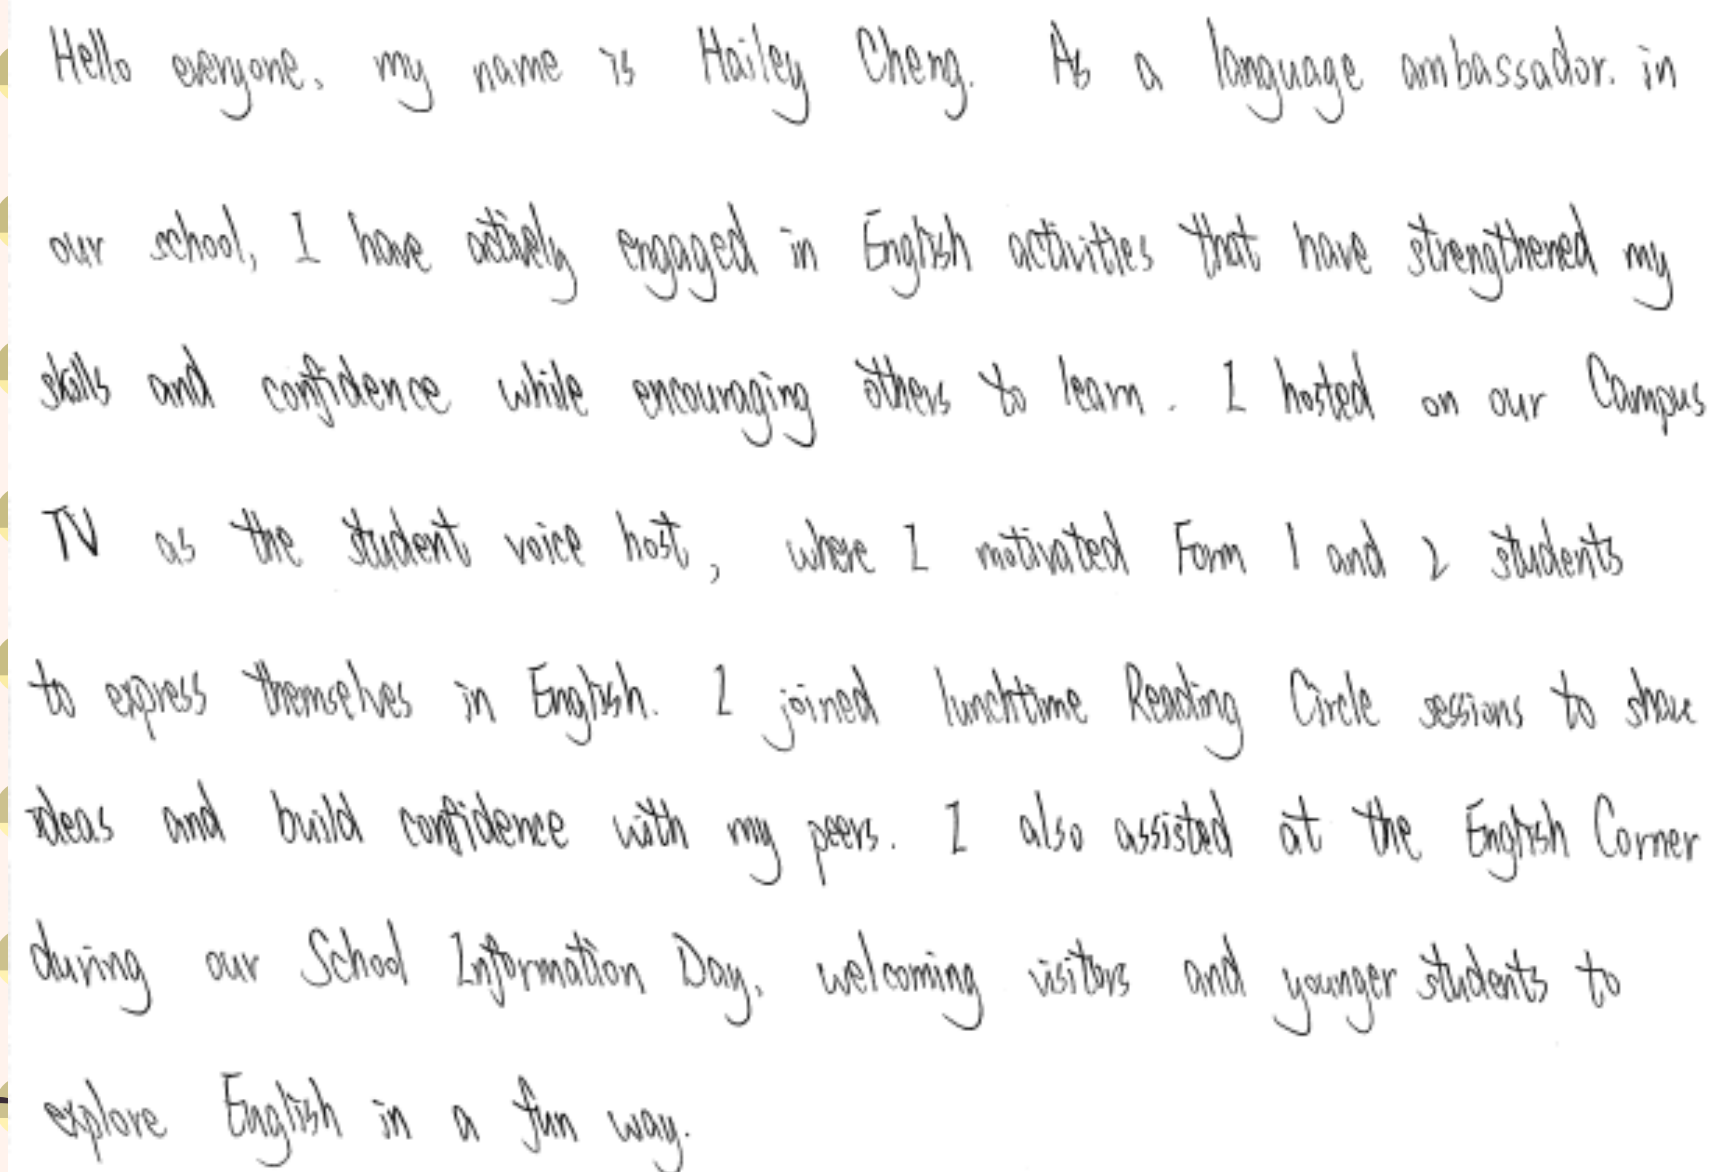 Hello everyone, my name is Hailey Cheng. As a language ambassador. in
our school, I have actively engaged in English activities that have strengthened my
skills and confidence while encouraging others to learn. I hosted on our Campus
TV as the student voice host, where I motivated Form 1 and 2 students
to express themselves in English. I joined lunchtime Reading Circle sessions to share
ideas and build confidence with my peers. I also assisted at the English Corner
during our School Information Day, welcoming visitors and younger students to
explore English in a fun way.